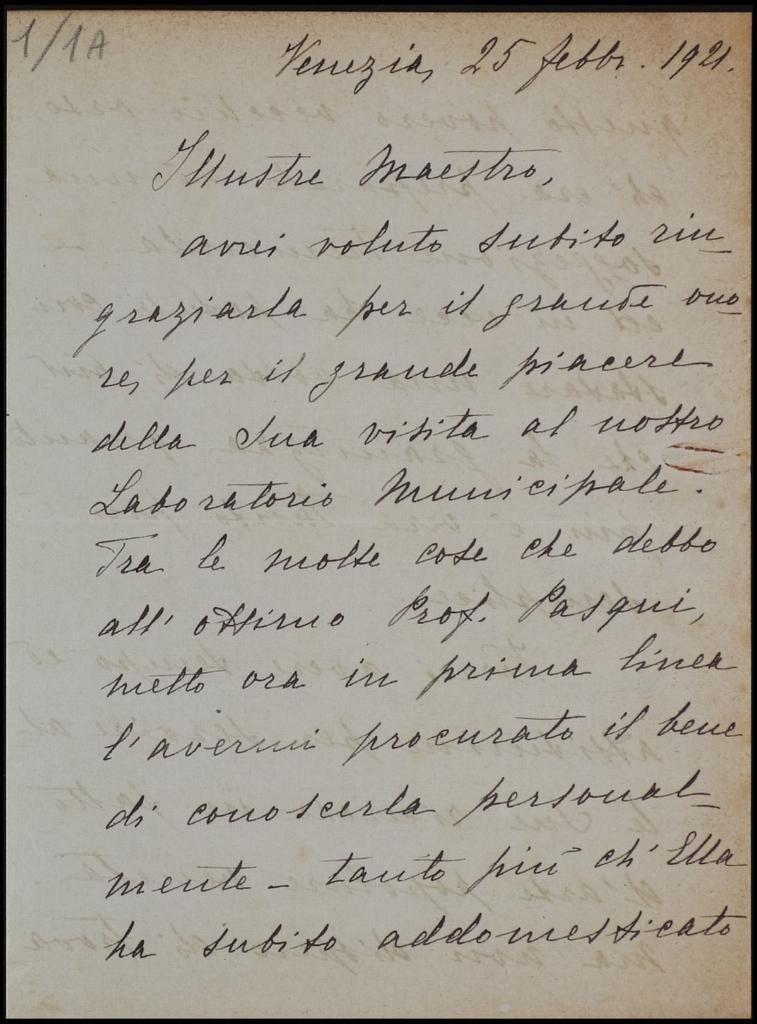 1/1A
Venezia, 25 febbr. 1921.
Illustre Maestro,
avrei voluto subito rin-
graziarla per il grande ono-
re, per il grande piacere
della Sua visita al nostro
Laboratorio Municipale.
Tra le molte cose che debbo
all' ottimo Prof. Pasqui,
metto ora in prima linea
l'avermi procurato il bene
di conoscerla personal-
mente - tanto più ch' Ella
ha subito addomesticato